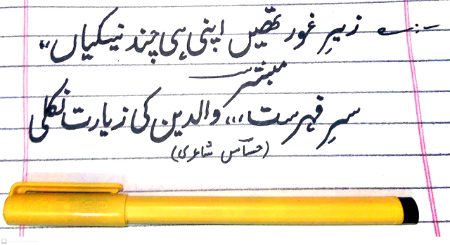 زیرِ غور تھیں اپنی ہی چند نیکیاں،،
مبشر
سرِ فہرست،،، والدین کی زیارت نکلی
(حساس شاعری)